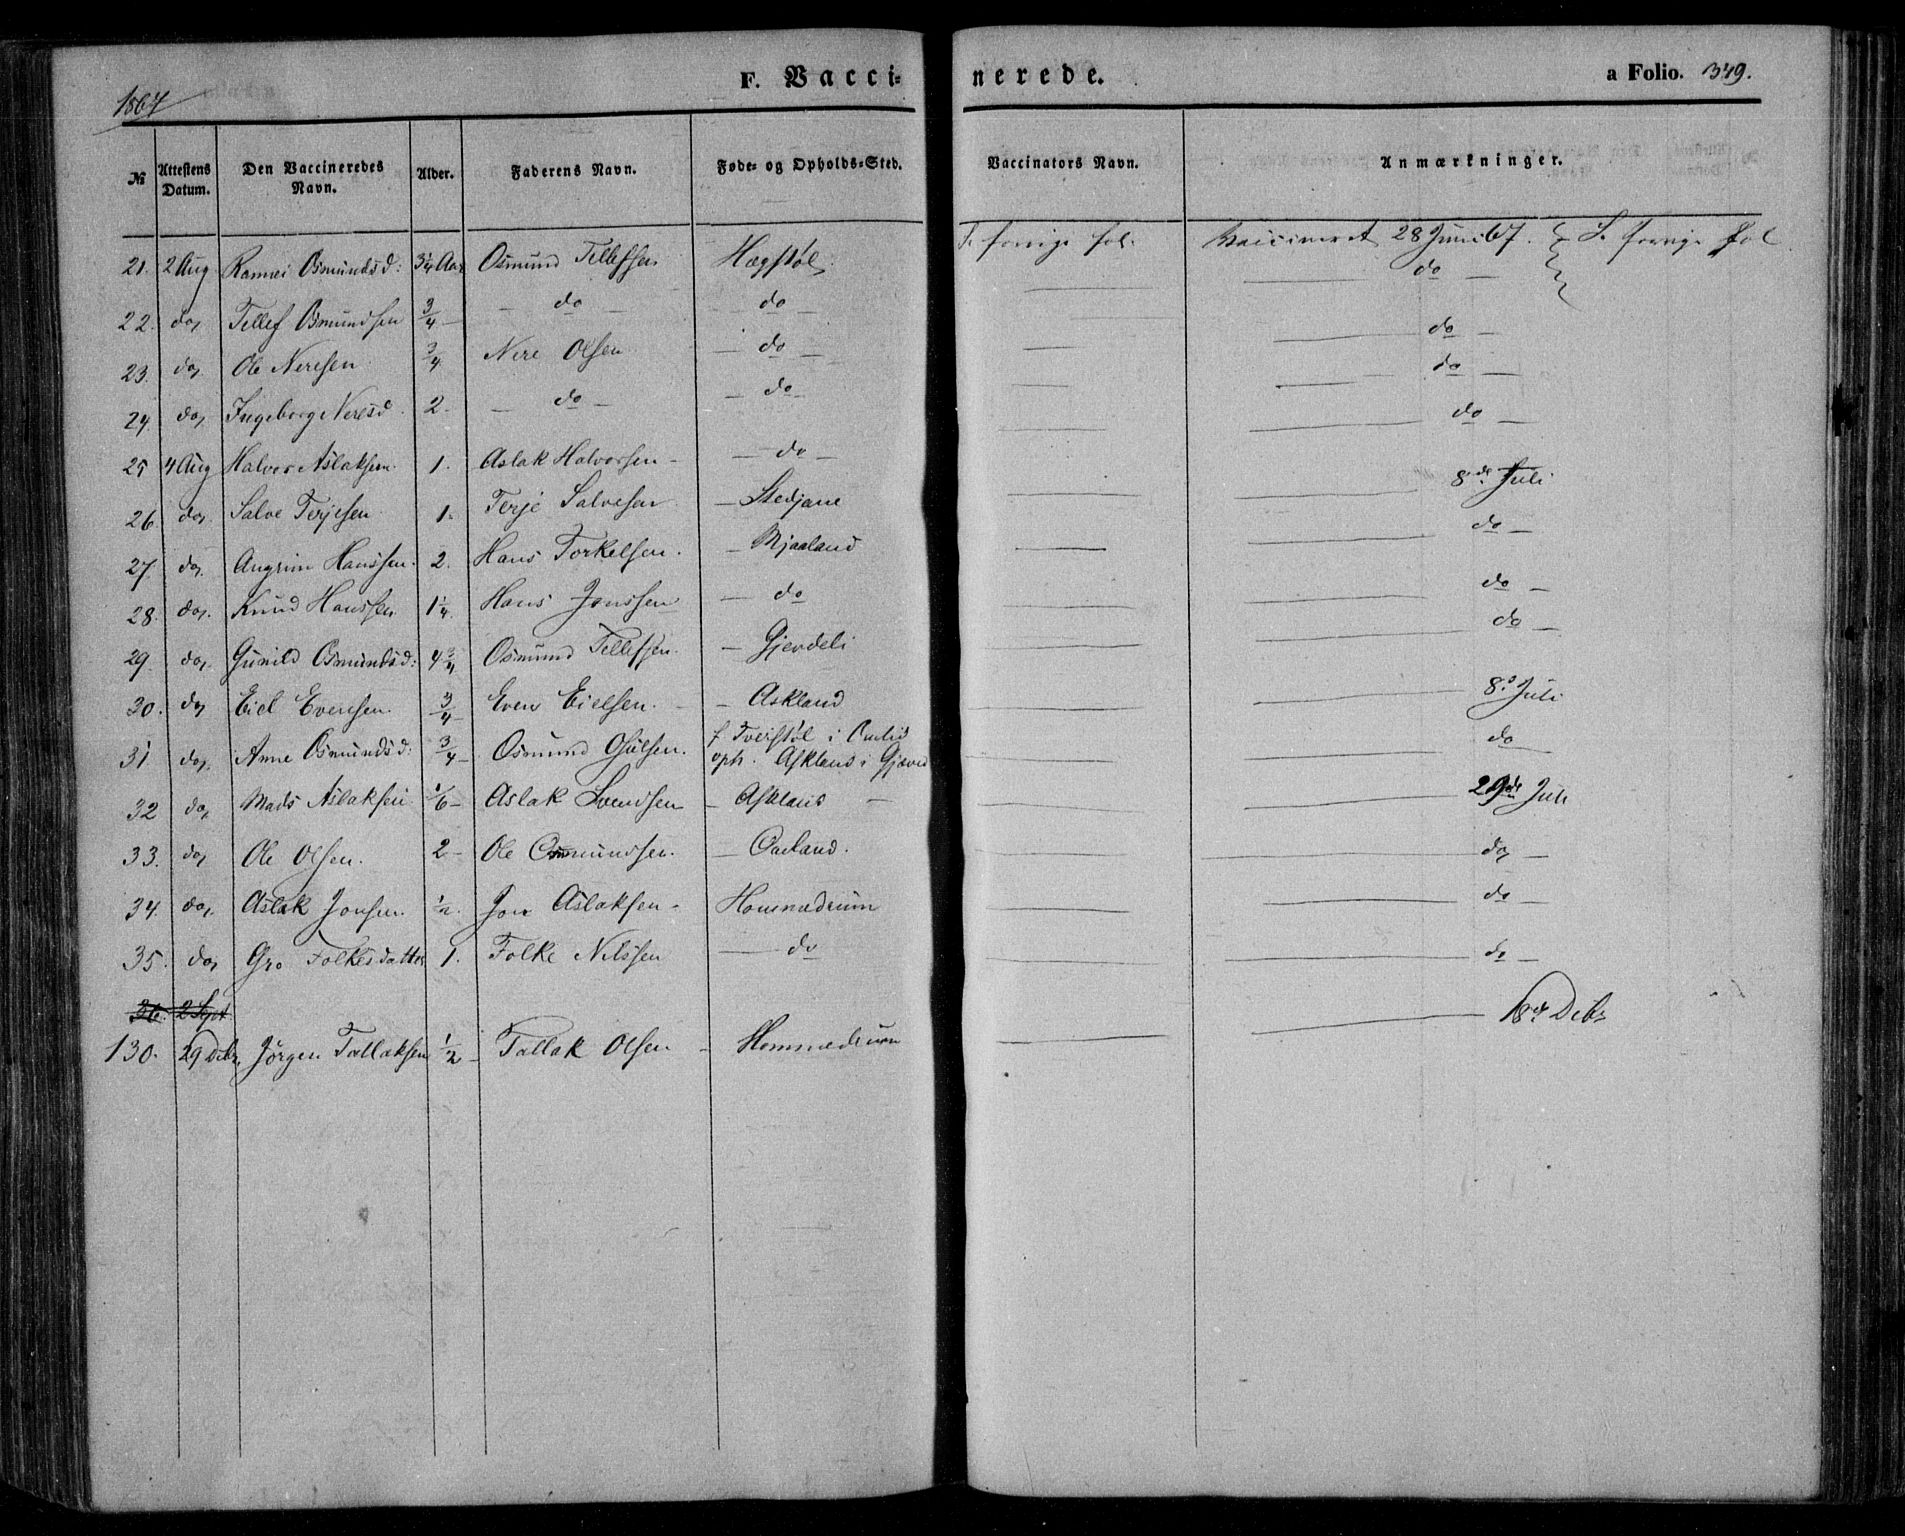 1867
F. Vacci- nerede. a Folio. 349.
№ Attestens Datum. Den Vaccineredes Navn. Alder. Faderens Navn. Føde- og Opholds-Sted. Vaccinators Navn. Anmærkninger.
21. 2 Aug Osmundsd: 3 1/4 Aar Osmund Tellefsen Hægstøl forrige fol. Vaccineret 28 Juni 67. forrige fol
22. do, Tellef Osmundsen 3/4 – – do – – do – – do –
23. do, Ole Neresen 3/4 Nere Olsen – do – – do –
24. do, Ingeborg Neresd. 2 – – do – – do – – do –
25 4 Aug Halvor Aslaksen 1. Aslak Halvorsen – – do – – do –
26. do, Salve Terjesen 1. Terje Salvesen – Stedjane 8de Juli
27. do, Augrim Hanssen. 2. Hans Torkelsen. – Mjaaland do –
28. do, Knud Hanssen 1 1/4. Hans Jonssen – do – do –
29. do, Gunild Osmundsd: 4 3/4 Osmund Tellefsen. – Gjerdeli – do –
30. do, Eiel Evensen. 3/4 – Even Eielsen. – – Askland – 8de Juli
31 do, Anne Osmundsd: 3/4 – Osmund Osulsen. f Tveistøl i
oph. Askland i – do
32 do, Mads Aslaksen 1/6 – Aslak Svendsen – Askland – – 29de Juli
33. do, Ole Olsen. 2 – Ole Osmundsen. – Øuland. – do, –
34. do, Aslak Jonsen. 1/2. Jon Aslaksen – Hommedrum – do –
35. do, Gro Folkesdatter 1. Folke Nilssen – do – do –
36. 2 Sept
130. 29 Debr, Jørgen Tallaksen 1/2 – Tallak Olsen – Hommedrum – 18de Debr